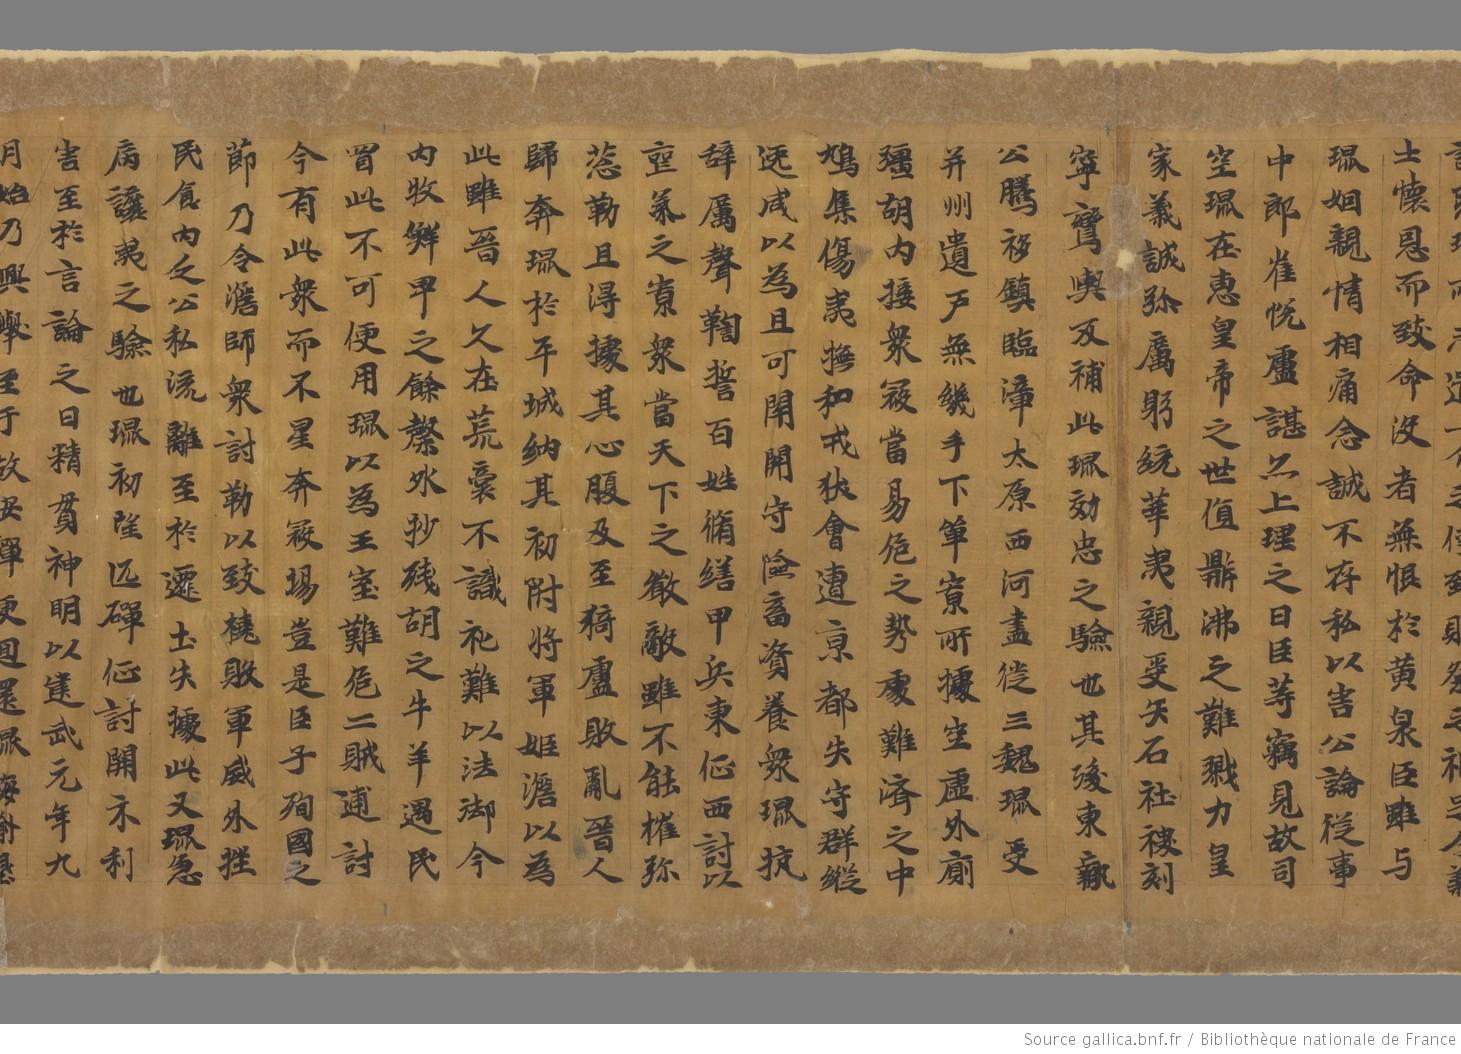 士懷恩而致命沒者無恨於黄泉臣雖与
琨姻親情相痛念誠不存私以害公論從事
中郎崔悅盧諶亦上理之日臣等竊見故司
空琨在惠皇帝之世值鼎沸之難戮力皇
家義誠弥厲躬統華夷親受矢石社稷刻
寧鸞輿及補此琨効忠之驗也其後東
公騰移鎮臨漳太原西河盡徙三魏琨受
并州遺戶無幾乎下單所據空虛外
彊胡内接衆寇當易危之勢處難濟之中
鳩集傷夷撫和戎狄會遭京都失守群縱
逆咸以為且可閇開守險畜資養衆琨抗
辞厲聲誓百姓脩繕甲兵東征西討以
氣之衆當天下之敵雖不能摧弥
勒且得據其心腹及至猗盧敗亂晉人
歸奔琨於平城納其初附將軍姬澹以為
此雖晉人久在荒裔不識難以法御今
内收鮮卑之餘外抄残胡之牛羊遇民
習此不可便用琨以為王室難危二賊逋討
今有此衆而不星奔寇場豈是臣子殉國之
節乃令澹師衆討勒以致橈敗軍威外挫
民食内乏公私流離至於遷土失據此又琨急
病讓夷之驗也琨初匹磾征討開不利
害至於言論之日精貫神明以建武元年九